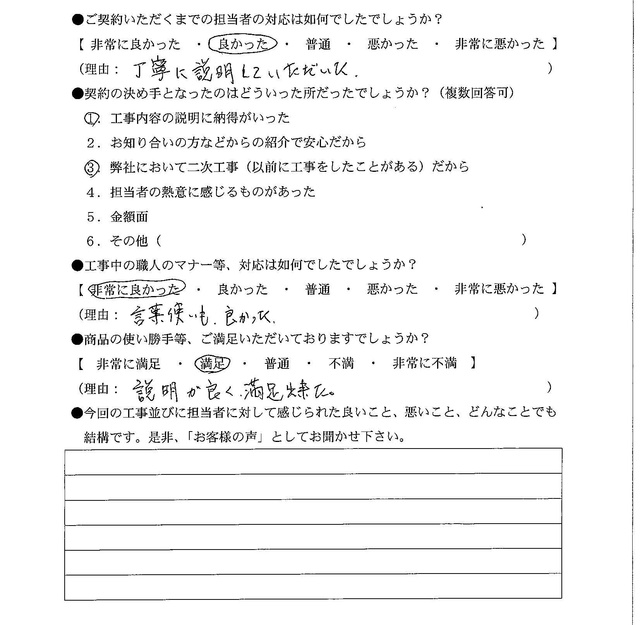 ●ご契約いただくまでの担当者の対応は如何でしたでしょうか?
【 非常に良かった ・ 良かった ・ 普通 ・ 悪かった ・ 非常に悪かった 】
(理由: 丁寧に説明していただいた. )
●契約の決め手となったのはどういった所だったでしょうか?(複数回答可)
1. 工事内容の説明に納得がいった
2. お知り合いの方などからの紹介で安心だから
3. 弊社において二次工事(以前に工事をしたことがある)だから
4. 担当者の熱意に感じるものがあった
5. 金額面
6. その他( )
●工事中の職人のマナー等、対応は如何でしたでしょうか?
【 非常に良かった ・ 良かった ・ 普通 ・ 悪かった ・ 非常に悪かった 】
(理由: 言葉使いも、良かった. )
●商品の使い勝手等、ご満足いただいておりますでしょうか?
【 非常に満足 ・ 満足 ・ 普通 ・ 不満 ・ 非常に不満 】
(理由: 説明が良く、満足出来た。 )
●今回の工事並びに担当者に対して感じられた良いこと、悪いこと、どんなことでも
結構です。是非、「お客様の声」としてお聞かせ下さい。